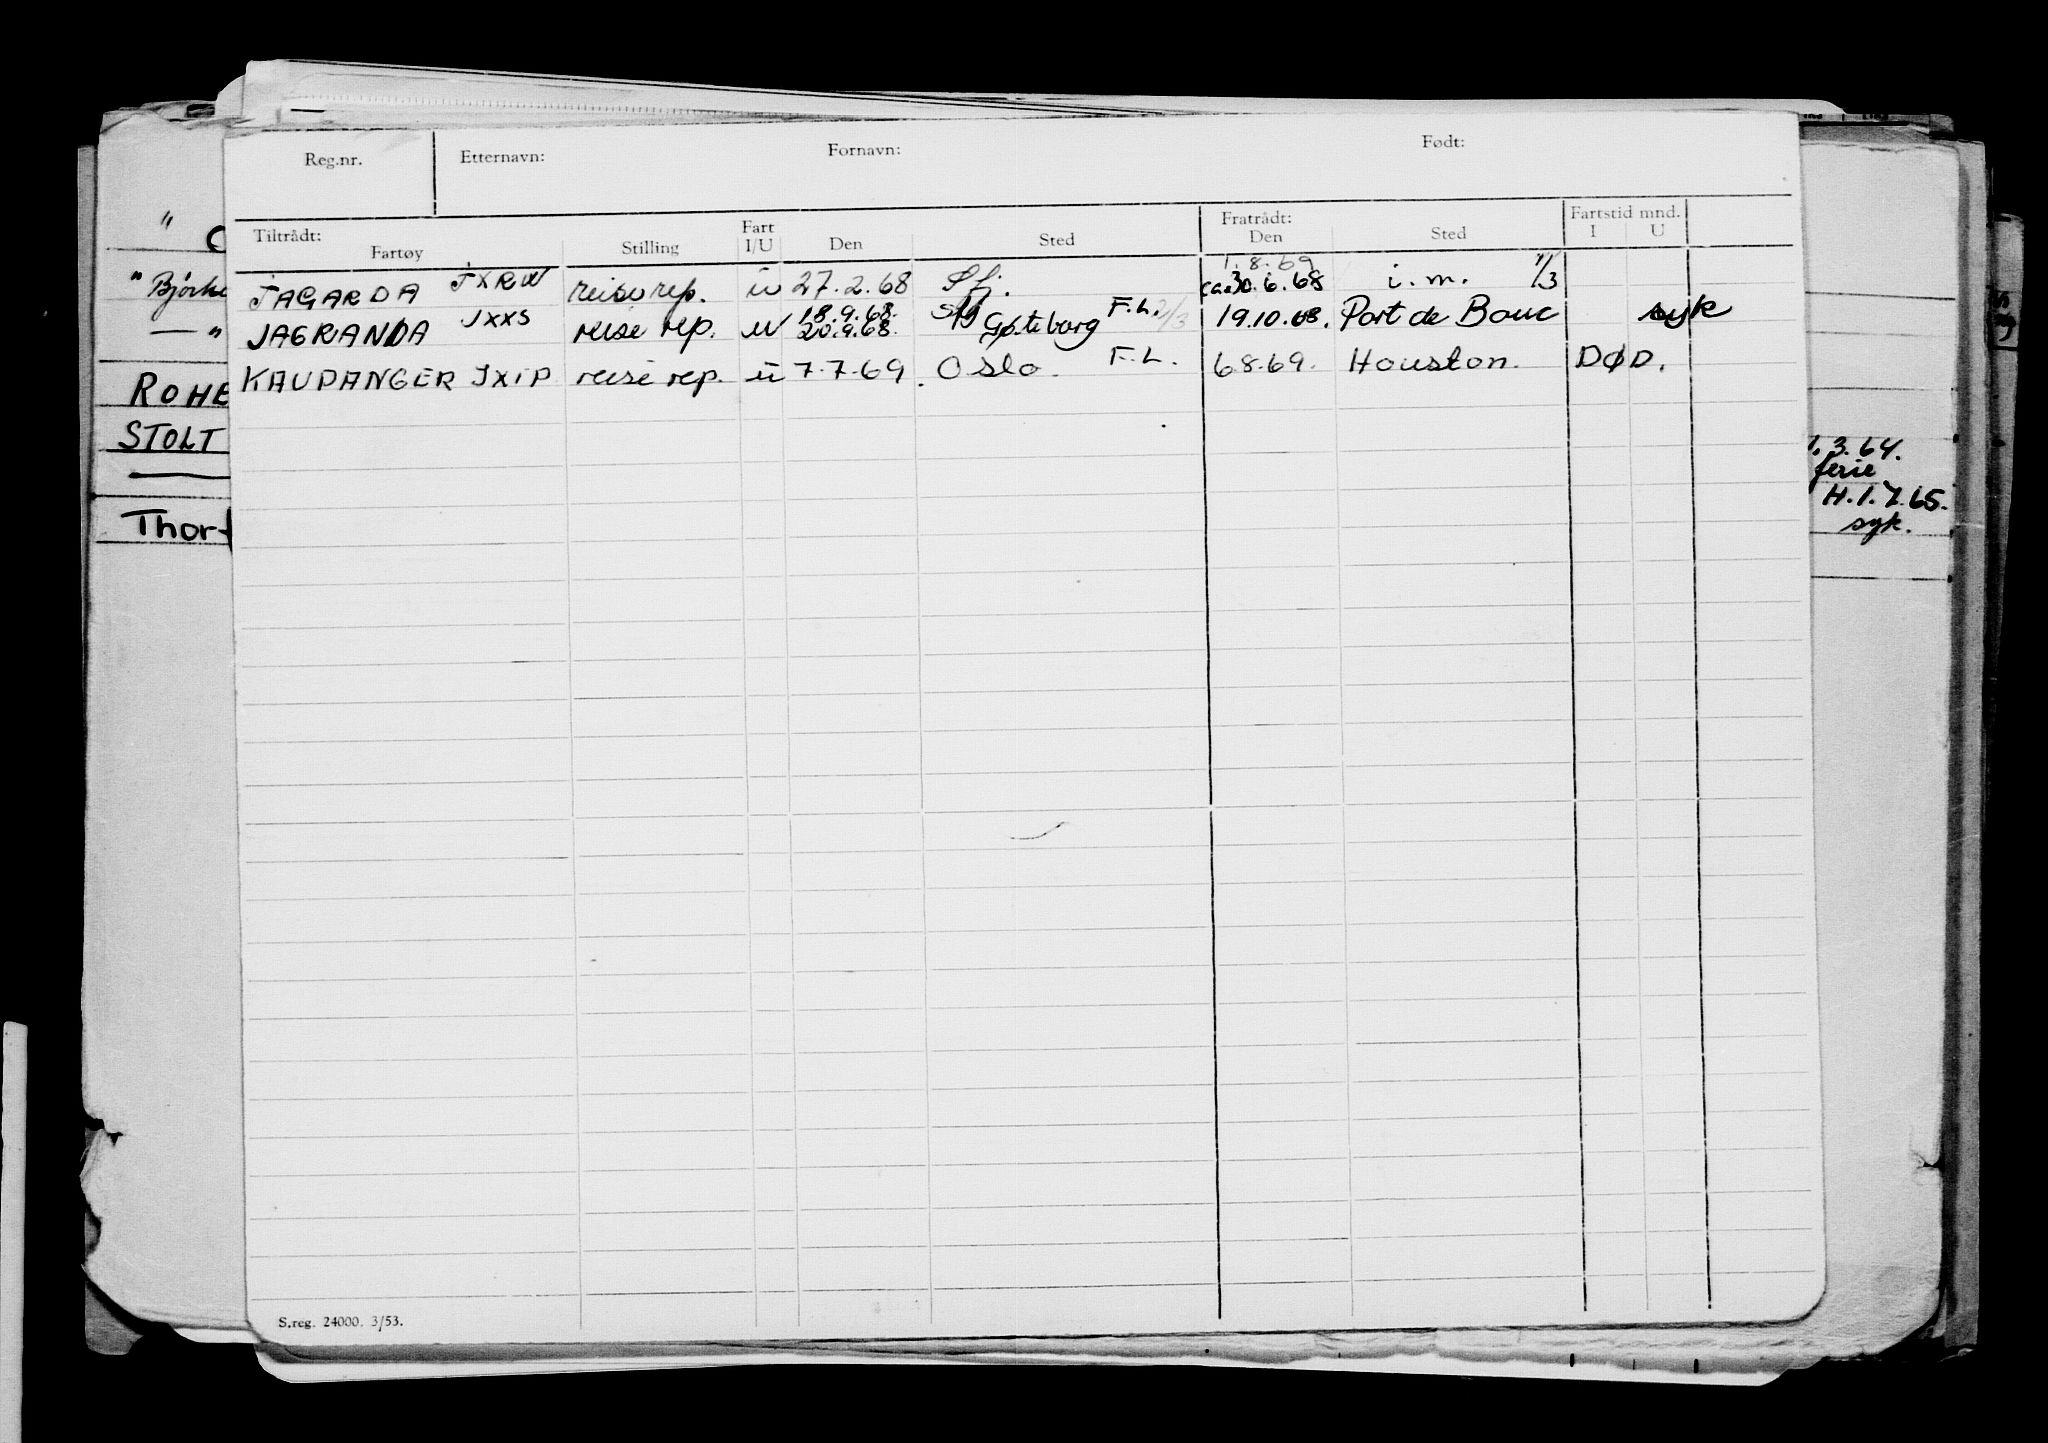 Reg.nr. Etternavn: Fornavn: Født:
Tiltrådt: Fart Fratrådt: Fartstid mnd.
Fartøy Stilling I/U Den Sted Den Sted I U
1.8.69
JAGARDA JXRW reise rep. u 27.2.68 Sfj. ca 30.6.68 i.m. 1/3
18.9.68.
JAGRANDA JXXS reise rep. u 20.9.68. Gøteborg F.L. 1/3 19.10.68. Port de Bouc syk
KAUPANGER JXIP reise rep. u 7.7.69. Oslo. F.L. 6.8.69. Houston. DØD.
S.reg. 24000. 3/53.
" Bjørke
— "
ROHE
STOLT
Thor
1.3.64.
ferie
H.1.7.65.
syk.